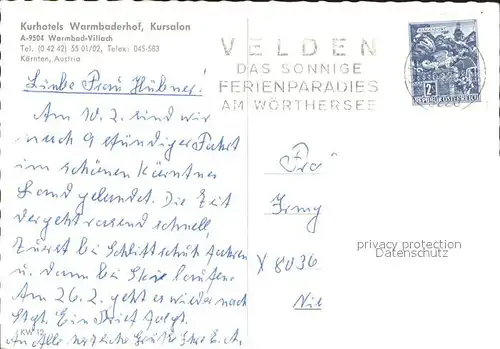 Kurhotels Warmbaderhof, Kursalon
A-9504 Warmbad-Villach
Tel. (0 42 42) 55 01/02, Telex: 045-583
Kärnten, Austria
VELDEN
DAS SONNIGE
FERIENPARADIES
AM WÖRTHERSEE
2
REPUBLIK ÖSTERREICH
Liebe Frau Hübner!
Am 10.2. sind wir
nach 9 stündiger Fahrt
im schönen Kärntner
Land gelandet. Die Zeit
vergeht rasend schnell,
zuerst bei Schlittschuh fahren
u. dann bei Ski laufen.
Am 26.2. geht es wieder nach
Stgt. Ein Brief folgt.
herzliche Grüße Ihre
KW 12
Fra
Irmg
X 8036
privacy protection
Datenschutz